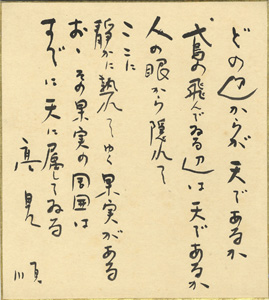 どの辺からが天であるか
鳶の飛んでゐる辺は天であるか
人の眼から隠れて
ここに
静かに熟れてゆく果実がある
おゝその果実の周囲は
すでに天に属してゐる
高見
順